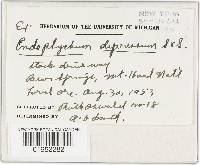 Ex HERBARIUM OF THE UNIVERSITY OF MICHIGAN
NEW YORK
Endoptychum depressum S & S.
stock driveway
Bear Springs, Mt. Hood Nat'l
Forest Ore. Aug. 30, 1953
COLLECTED BY Ruth Oswald no 18
DETERMINED BY A. H. Smith